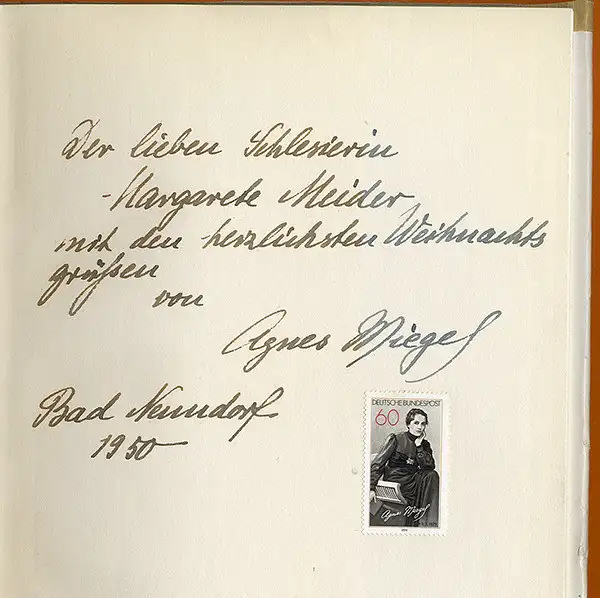 Der lieben Schlesierin
Margarete Meider
mit den herzlichsten Weihnachts
grüßen
von
Agnes Miegel
Bad Nenndorf
1950
DEUTSCHE BUNDESPOST
60
Agnes Miegel